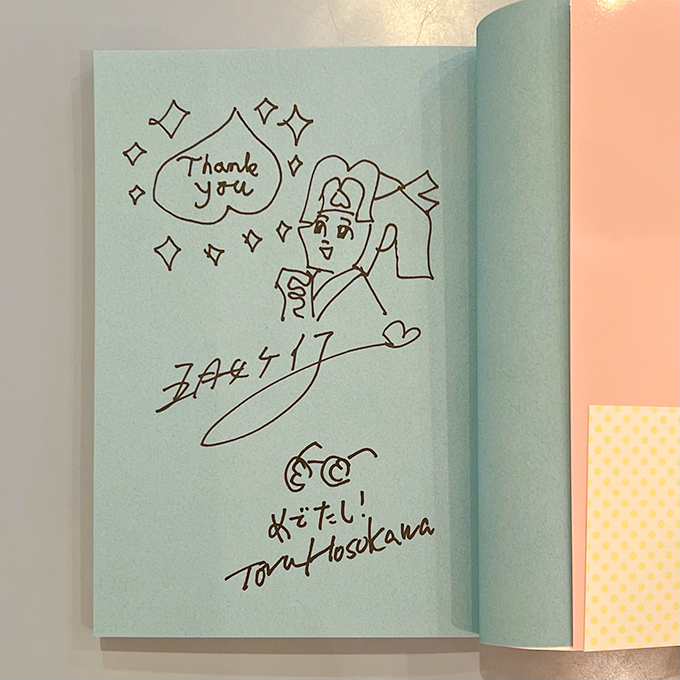 Thank
you
五月女ケイ子
めでたし!
Toru Hosokawa